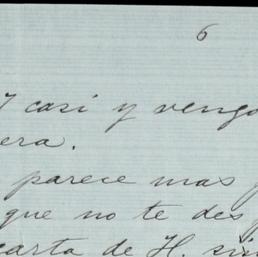 6
y casi y vengo
era.
parece mas
que no te des
carta de H. sin